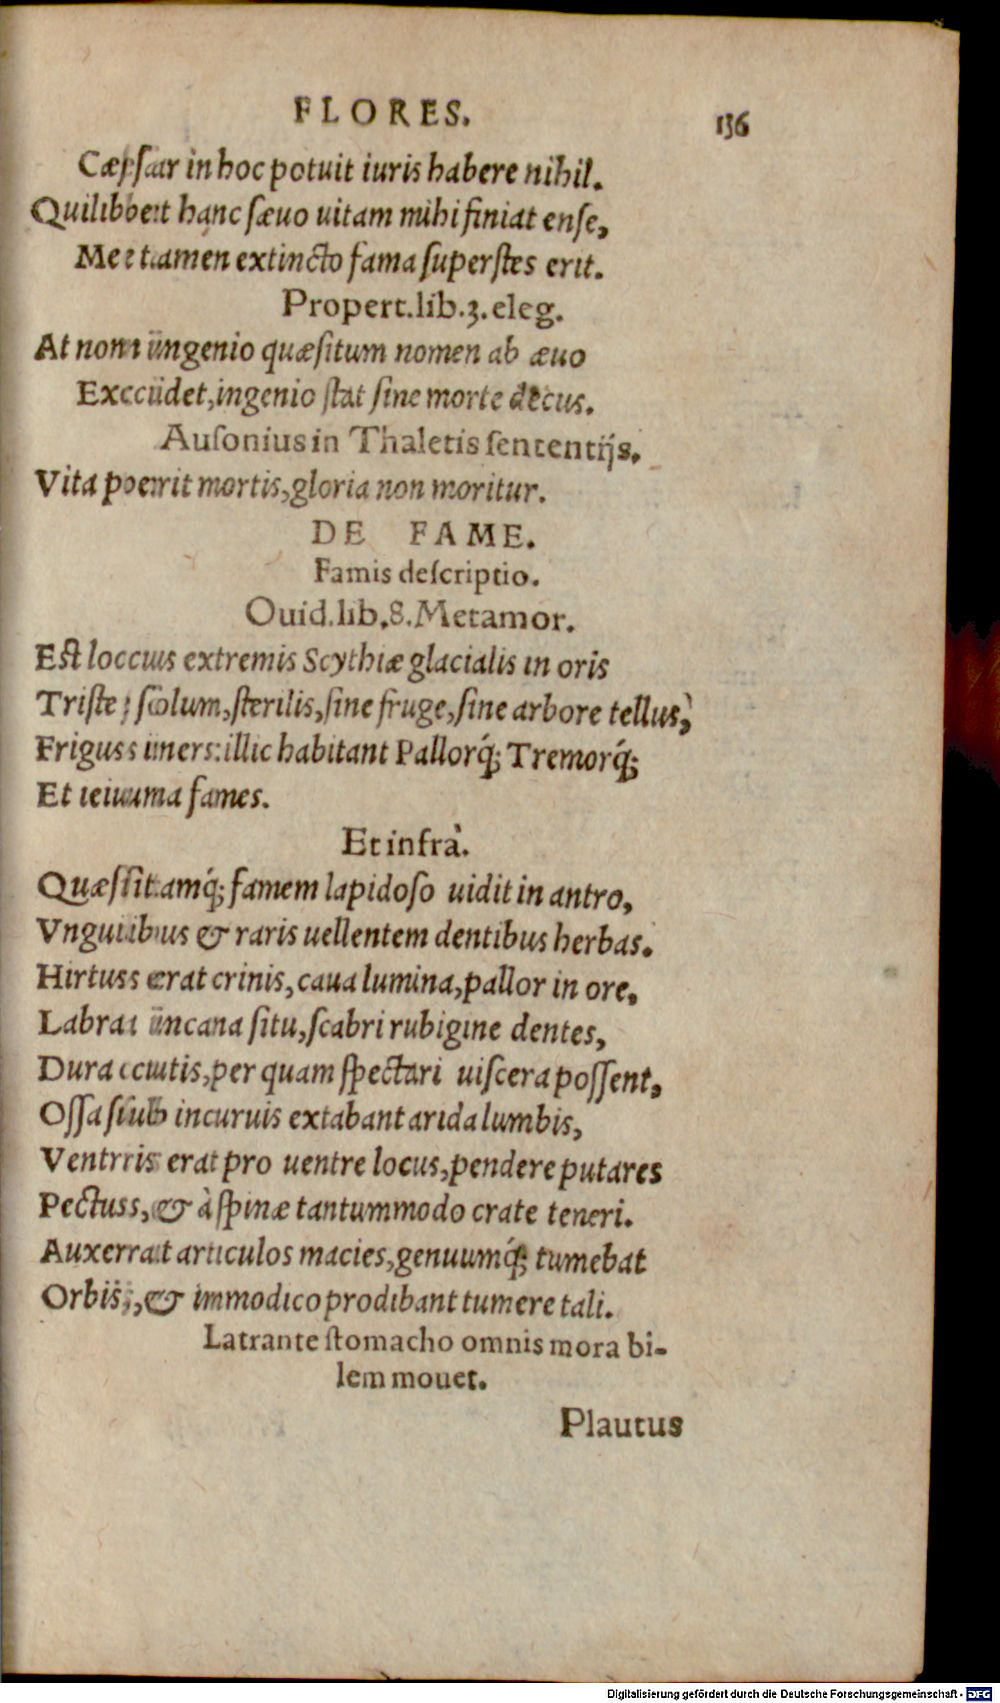 FLORES. 136
Cæsar in hoc potuit iuris habere nihil.
Quilibet hanc sæuo uitam mihi finiat ense,
Me tamen extincto fama superstes erit.
Propert.lib.3.eleg.
At non ingenio quæsitum nomen ab æuo
Excidet,ingenio stat sine morte decus.
Ausonius in Thaletis sententijs.
Vita perit mortis,gloria non moritur.
DE FAME.
Famis descriptio.
Ouid.lib.8.Metamor.
Est locus extremis Scythiæ glacialis in oris
Triste solum,sterilis,sine fruge,sine arbore tellus,
Frigus iners:illic habitant Pallorq́; Tremorq́;
Et ieiuna fames.
Et infrà.
Quæsitamq́; famem lapidoso uidit in antro,
Vnguibus & raris uellentem dentibus herbas.
Hirtus erat crinis,caua lumina,pallor in ore,
Labra incana situ,scabri rubigine dentes,
Dura cutis,per quam spectari uiscera possent,
Ossa sub incuruis extabant arida lumbis,
Ventris erat pro uentre locus,pendere putares
Pectus,& à spinæ tantummodo crate teneri.
Auxerat articulos macies,genuumq́; tumebat
Orbis,& immodico prodibant tumere tali.
Latrante stomacho omnis mora bi-
lem mouet.
Plautus
Digitalisierung gefördert durch die Deutsche Forschungsgemeinschaft - DFG